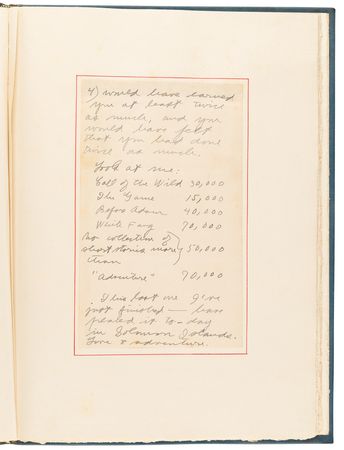 4) would have earned
you at least twice
as much, and you
would have felt
that you had done
twice as much.
Look at me.
Call of the Wild 30,000
The Game 15,000
Before Adam 40,000
White Fang 70,000
No collection of
short stories more } 50,000
than
"Adventure" 70,000
This last one I've
just finished — have
it to-day
in Solomon Islands.
Love & adventure.